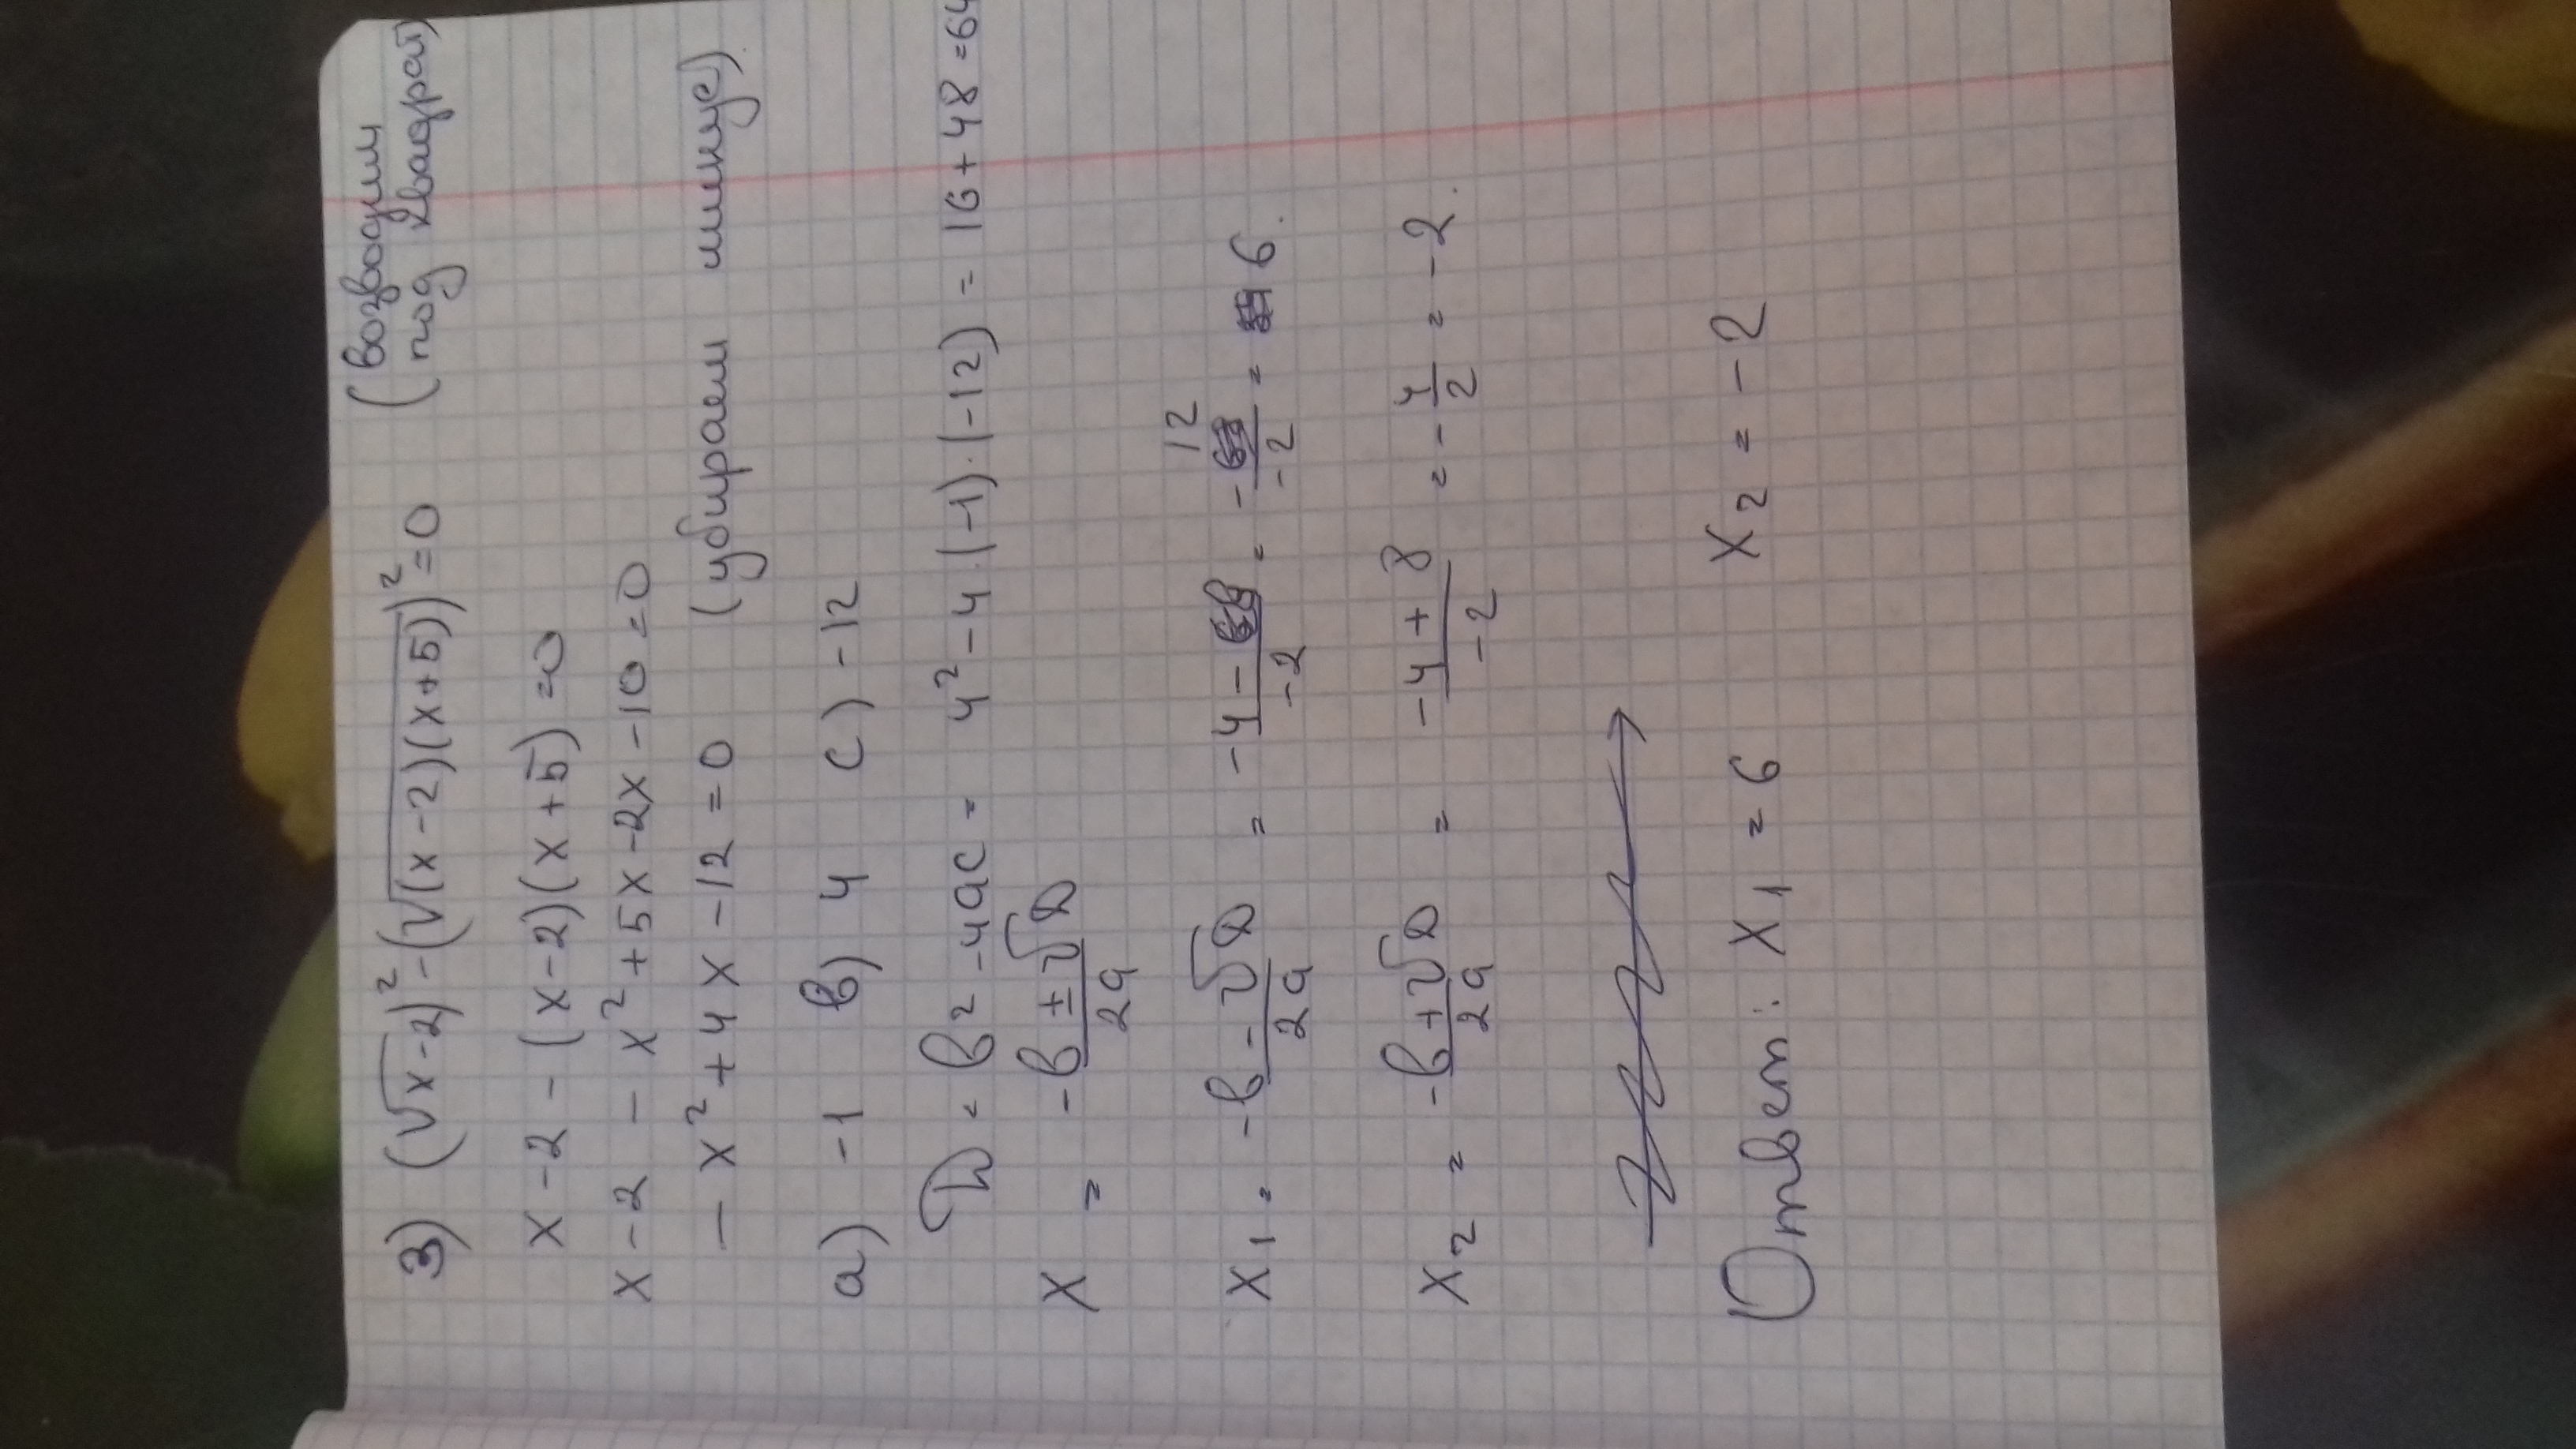 3) (√x-2)² - (√(x-2)(x+5))² = 0 (возводим
(под квадрат)
x - 2 - (x-2)(x+5) = 0
x - 2 - x² + 5x - 2x - 10 = 0
- x² + 4x - 12 = 0 (убираем минус)
a) -1 b) 4 c) -12
D = b² - 4ac = 4² - 4·(-1)·(-12) = 16 + 48 = 64
x = -b ± √D / 2a
x₁ = -b - √D / 2a = -4 - / -2 = - 12 / -2 = 6.
x₂ = -b + √D / 2a = -4 + 8 / -2 = - 4/2 = -2.
Ответ: x₁ = 6 x₂ = -2